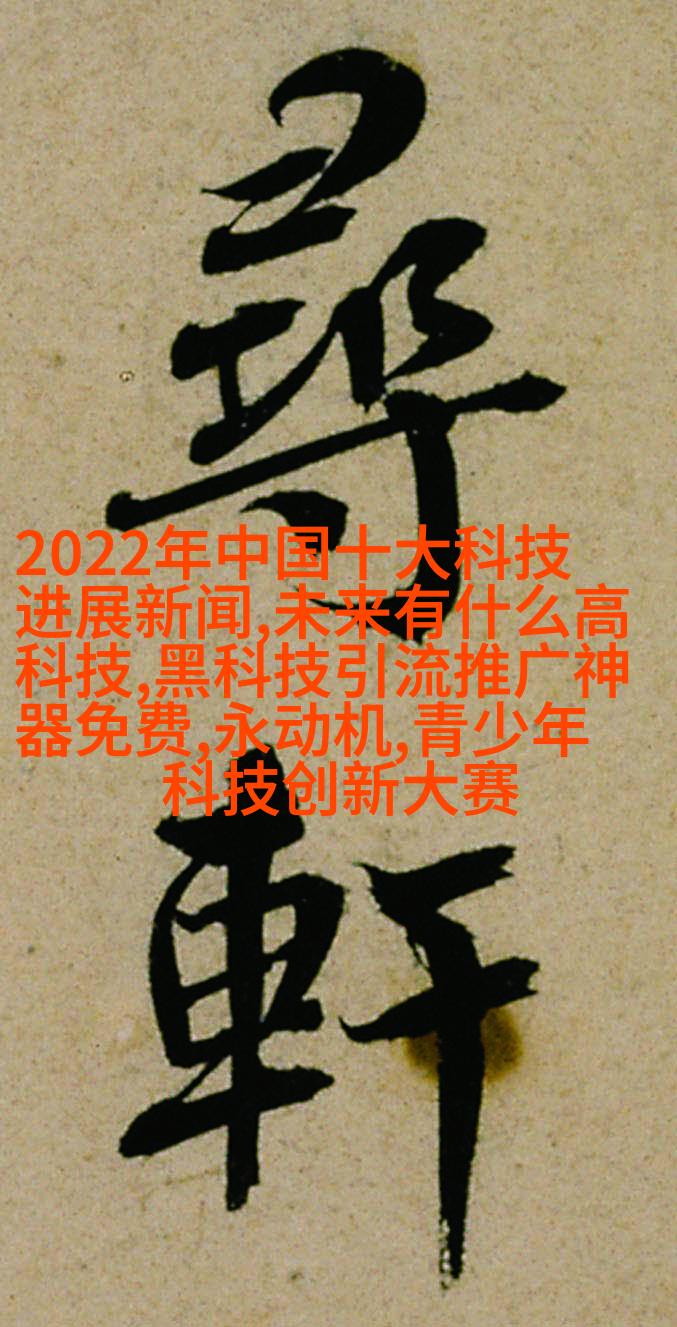 尋
軒
2022年中国十大科技
进展新闻,未来有什么高
科技,黑科技引流推广神
器免费,永动机,青少年
科技创新大赛